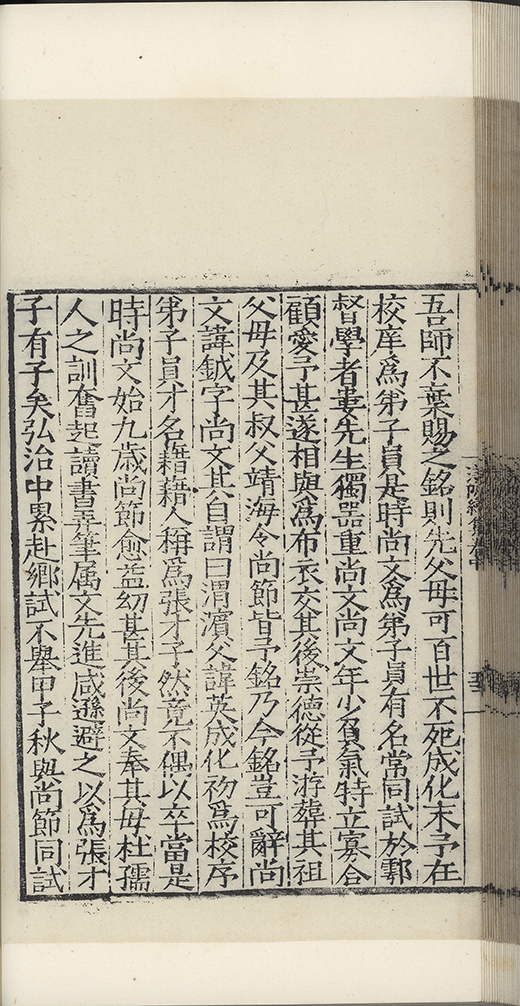 吾師不棄賜之銘則先父母可百世不死成化末予在
校庠爲弟子員是時尚文爲弟子員有名常同試於鄠
督學者婁先生獨器重尚文尚文年少負氣特立寡合
顧愛予甚遂相與爲布衣交其後崇德從予游葬其祖
父母及其叔父靖海令尚節皆予銘乃今銘豈可辭尚
文諱鉞字尚文其自謂曰渭濵父諱英成化初爲校序
弟子員才名藉藉人稱爲張才子然竟不偶以卒當是
時尚文始九歳尚節愈益幼甚其後尚文奉其母杜孺
人之訓奮起讀書弄筆属文先進咸遜避之以爲張才
子有子矣弘治中累赴鄉試不舉甲子秋與尚節同試